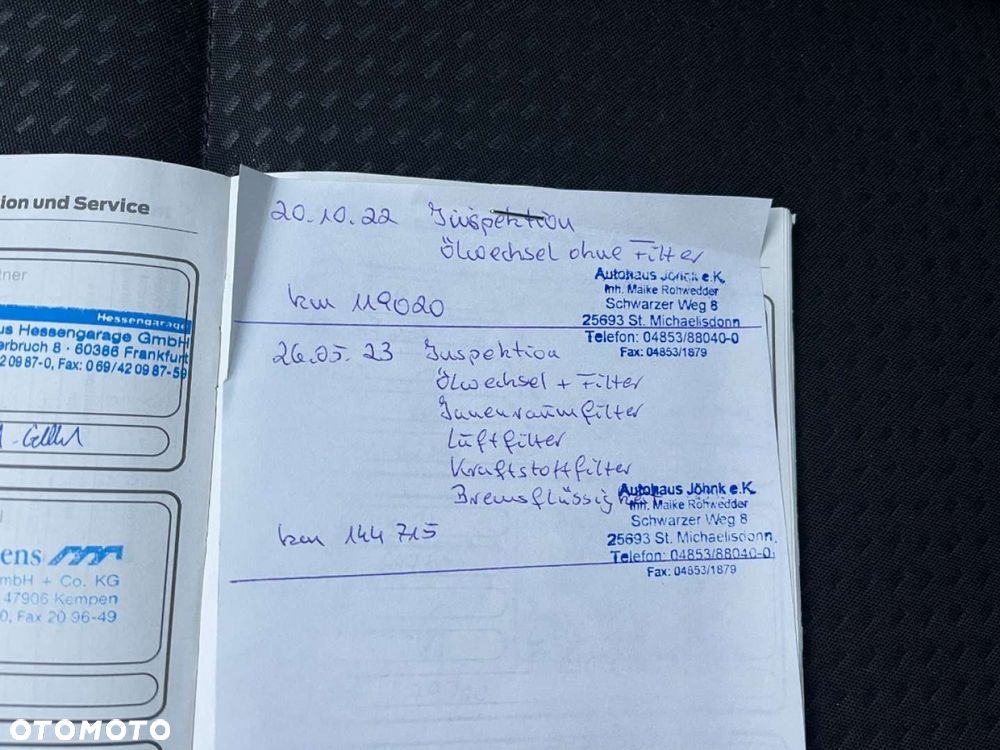 ion und Service
tner
Hessengarage
us Hessengarage GmbH
erbruch 8 · 60386 Frankfurt
2 09 87-0, Fax: 0 69/42 09 87-59
ens
mbH + Co. KG
47906 Kempen
0, Fax 20 96-49
20.10.22 Inspektion
Ölwechsel ohne Filter
km 119020
Autohaus Jöhnk e.K.
Inh. Maike Rohwedder
Schwarzer Weg 8
25693 St. Michaelisdonn
Telefon: 04853/88040-0
Fax: 04853/1879
26.05.23 Inspektion
Ölwechsel + Filter
Innenraumfilter
Luftfilter
Kraftstoffilter
Bremsflüssigkeit
km 144715
Autohaus Jöhnk e.K.
Inh. Maike Rohwedder
Schwarzer Weg 8
25693 St. Michaelisdonn
Telefon: 04853/88040-0
Fax: 04853/1879
OTOMOTO